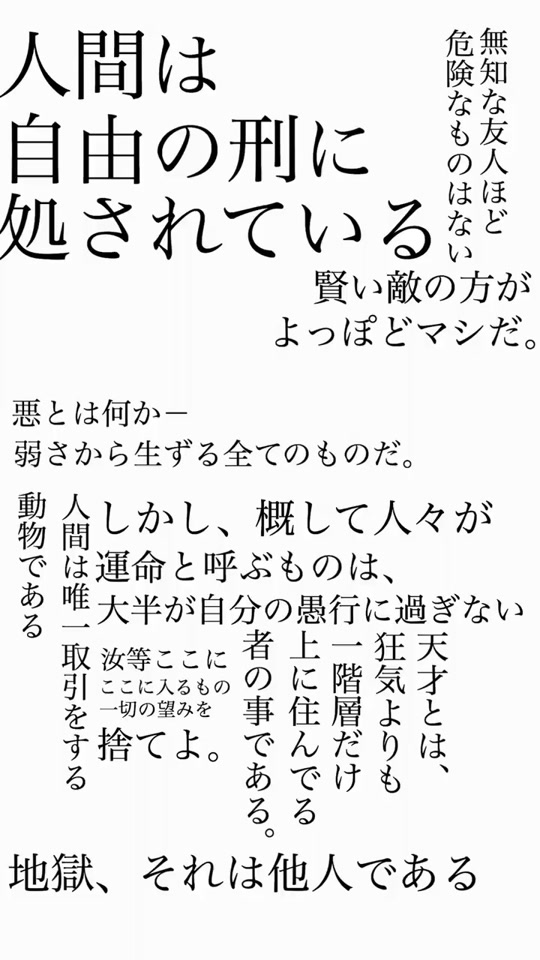 人間は
自由の刑に
処されている
無知な友人ほど
危険なものはない
賢い敵の方が
よっぽどマシだ。
悪とは何か－
弱さから生ずる全てのものだ。
人間は唯一取引をする
動物である
しかし、概して人々が
運命と呼ぶものは、
大半が自分の愚行に過ぎない
天才とは、
狂気よりも
一階層だけ
上に住んでる
者の事である。
汝等ここに
ここに入るもの
一切の望みを
捨てよ。
地獄、それは他人である